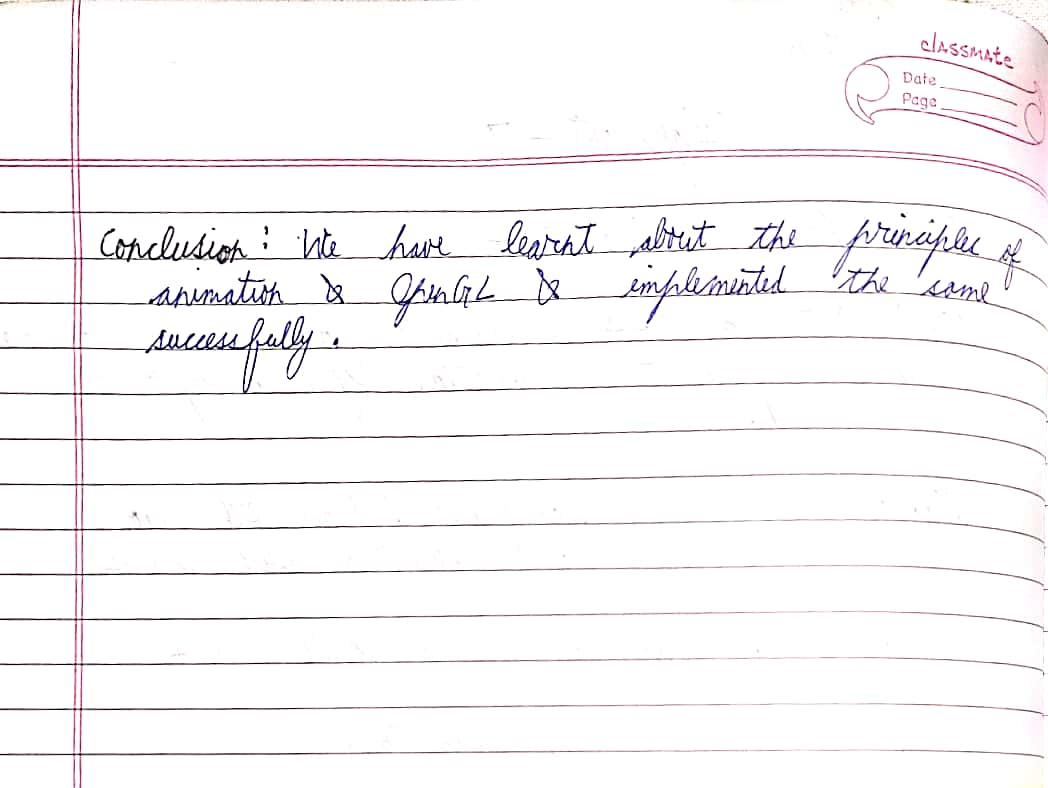 classmate
Date
Page
Conclusion : We have learnt about the principles of
animation & OpenGL & implemented the same
successfully.